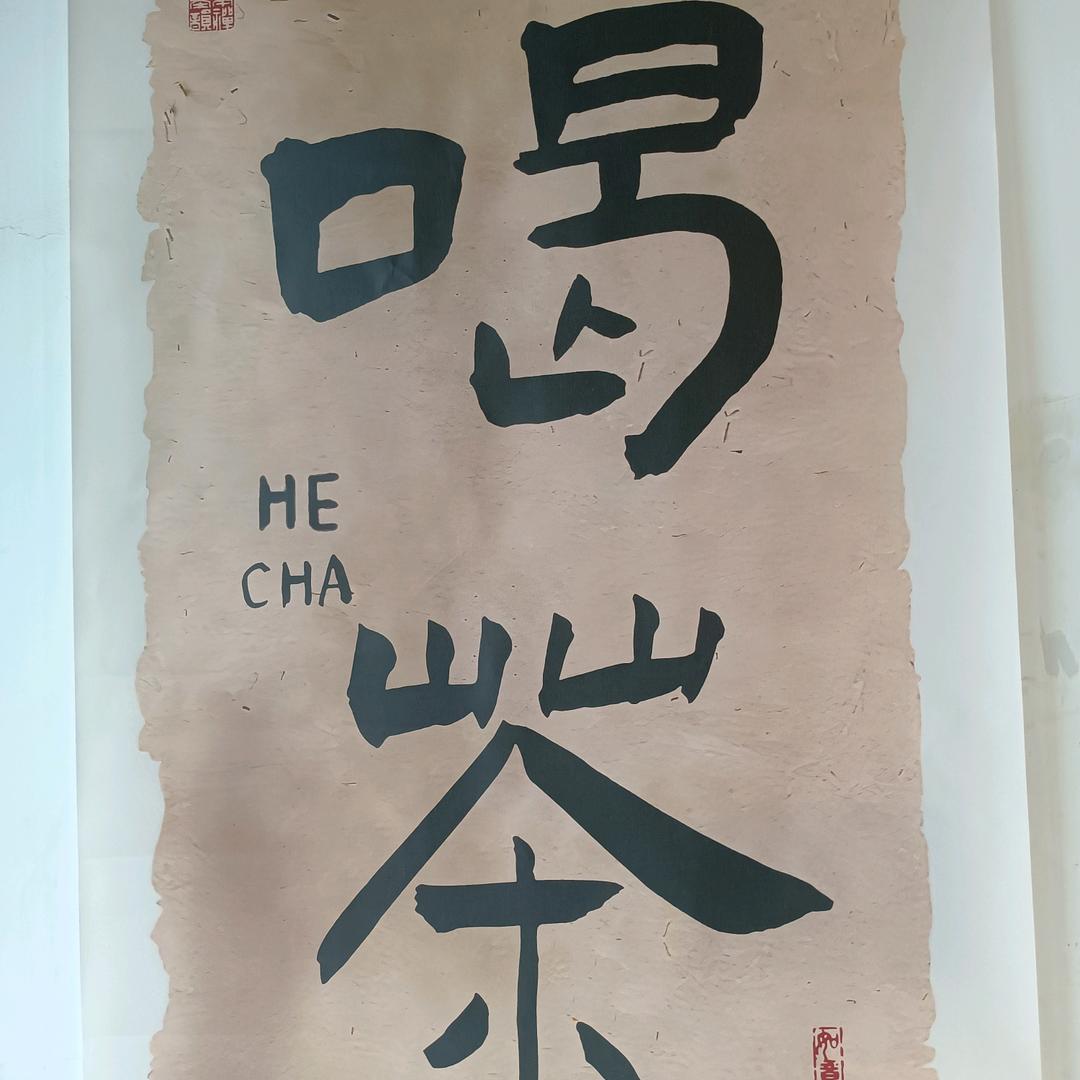 喝
HE
CHA
茶